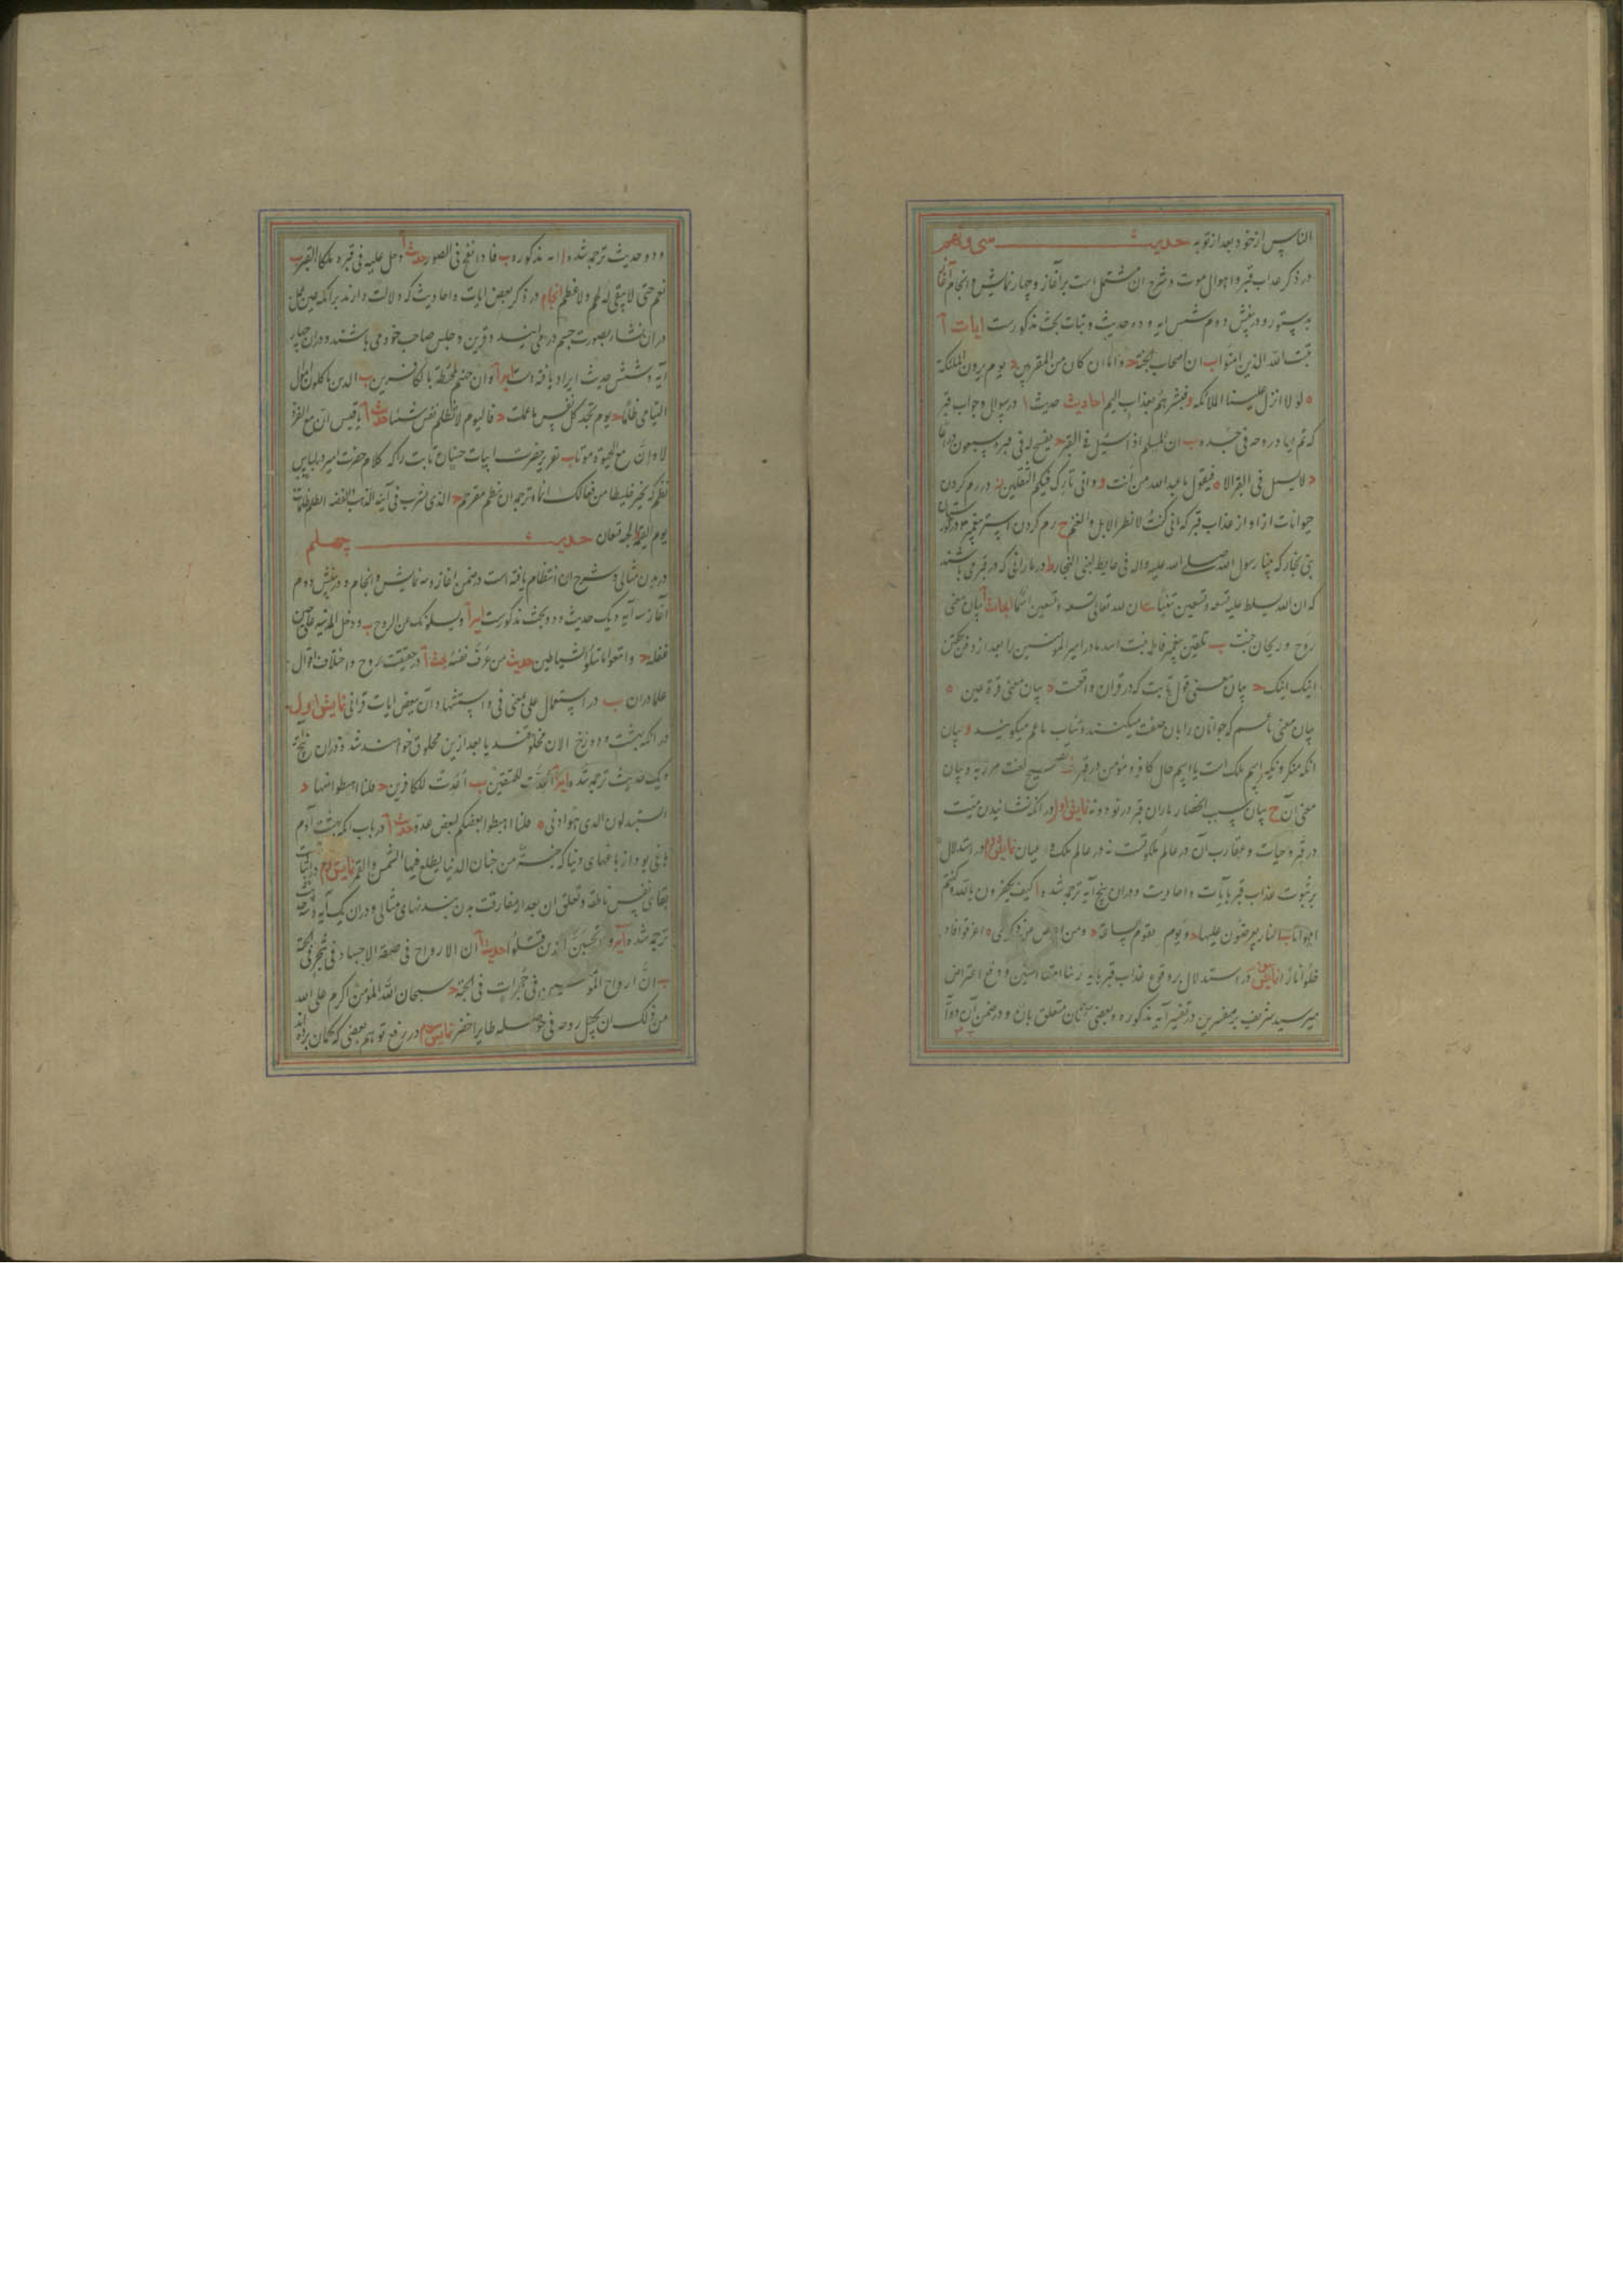 الناس از خود بعد از توبه حدیث سی و نهم
در ذکر عذاب قبر و اهوال موت و شرح آن مشتمل است بر آغاز و چهار نمایش و انجام آغاز
بدستور و در بخش دوم شش آیه و ده حدیث و بحث مذکورست آیات آ
یثبت الله الذین امنوا ب ان اصحاب الجنة ح واما ان کان من المقربین د یوم یرون الملئکة
ه لولا انزل علیسنا الملائکه و فبشرهم بعذاب الیم احادیث حدیث ا در سوال و جواب قبر
که ثم یعاد روحه فی جسده ب ان المسلم اذا سئل فی القبر ح یفسح له فی قبره سبعون ذراعا
د لا یسل فی القبر الا ه فیقول یا عبد الله من أنت و و انی تارک فیکم الثقلین ز در رم کردن
حیوانات از آواز عذاب قبر که انی کنت لانظر الابل و الغنم ح رم کردن استر پیغمبر در بوستان
بنی نجار که بینا رسول الله صلی الله علیه و اله فی حایط لبنی النجار ط در مارانی که در قبر می باشند
که ان الله یسلط علیه تسعه و تسعین تنینا ی ان لله تعالی تسعه و تسعین اسما ابحاث آ بیان معنی
روح و ریحان جنت ب تلقین پیغمبر فاطمه بنت اسد مادر امیر المؤمنین را بعد از دفن بگفتن
ابنک ابنک ح بیان معنی قول ثابت که در قران واقعست د بیان معنی قرة عین ه
بیان معنی ناعم که جوانان را بان صفت میکنند و شاب ناعم میکویند و بیان
انکه منکر و نکیر اسم ملک است یا اسم حال کافر و مؤمن در قبر ز تصحیح لغت مرزبه و بیان
معنی آن ح بیان سبب انحصار ماران قبر در نود و نه نمایش اول در انکه نشانیدن میت
در قبر و حیات و عقارب آن در عالم ملکوتست نه در عالم ملک و عیان نمایش دوم در استدلال
بر ثبوت عذاب قبر بآیات و احادیث و در ان پنج آیه ترجمه شده ا کیف تکفرون بالله و کنتم
امواتا ب النار یعرضون علیها ح و یوم تقوم الساعة د ومن اعرض عن ذکری ه اغرقوا فاد
خلوا نارا نمایش سوم در استدلال بر وقوع عذاب قبر بایه ربنا امتنا اثنتین و دفع اعتراض
میر سید شریف بر مفسرین در تفسیر آیه مذکوره و بعضی سخنان متعلق بان و در ضمن آن دو آ
و دو حدیث ترجمه شده ا ایه مذکوره ب فاذا نفخ فی الصور حدیث آ دخل علیه فی قبره ملکا القبر ب
نعم حتی لا یبقی له لحم ولا عظم انجام در ذکر بعض ایات و احادیث که دلالت دارند بر انکه عین عمل
در ان نشأ بصورت جسم در می ایند و قرین و جلیس صاحب خود می باشند و در ان چهار
آیه و شش حدیث ایراد یافته است آیات آ وان جهنم لمحیطة بالکافرین ب الذین یاکلون اموال
الیتامی ظلما ح یوم تجد کل نفس ما عملت د فالیوم لا تظلم نفس شیئا حدیث آ یا قیس ان مع العز
ذلا و ان مع الحیوة موتا ب تقریر حضرت ابیات حسان ثابت را که کلام حضرت امیر در لباس
نظم که تخیر خلیطا من فعالک انما و ترجمه ان نظم مقرحم ح الذی یشرب فی آنیة الذهب و الفضه د الظلم ظلمات
یوم القیمة ه الجنة قیعان حدیث چهلم
در بدن مثالی و شرح ان انتظام یافته است در ضمن اغاز و سه نمایش و انجام و در بخش دوم
آغاز سه آیه و یک حدیث و دو بحث مذکورست آیات آ ویسئلونک عن الروح ب و دخل المدینه علی حین
غفله ح و اتبعوا ما تتلوا الشیاطین حدیث من عرف نفسه بحث آ در حقیقت روح و اختلاف اقوال
علما در ان ب در استعمال علی بمعنی فی و استشهاد آن ببعض ایات قرانی نمایش اول
در انکه بهشت و دوزخ الان مخلوقند یا بعد ازین مخلوق خواهند شد و در ان پنج آیه
و یک حدیث ترجمه شده آیات آ اعدت للمتقین ب اعدت للکافرین ح قلنا اهبطوا منها د
اتستبدلون الذی هو ادنی ه قلنا اهبطوا بعضکم لبعض عدو حدیث آ در باب انکه بهشت آدم
باغی بود از باغهای دنیا که جنة من جنان الدنیا یطلع فیها الشمس و القمر نمایش دوم در اثبات
بقای نفس ناطقه و تعلق ان بعد از مفارقت بدن ببدنهای مثالی و در ان یک آیه و سه حدیث
ترجمه شده آیه ولا تحسبن الذین قتلوا حدیث آ ان الارواح فی صفة الاجساد فی شجر فی الجنة
ب ان ارواح المؤمنین فی حجرات فی الجنة ح سبحان الله المؤمن اکرم علی الله
من ذلک ان یجعل روحه فی حوصله طایر اخضر نمایش سوم در رفع توهم بعضی که کمان برده اند